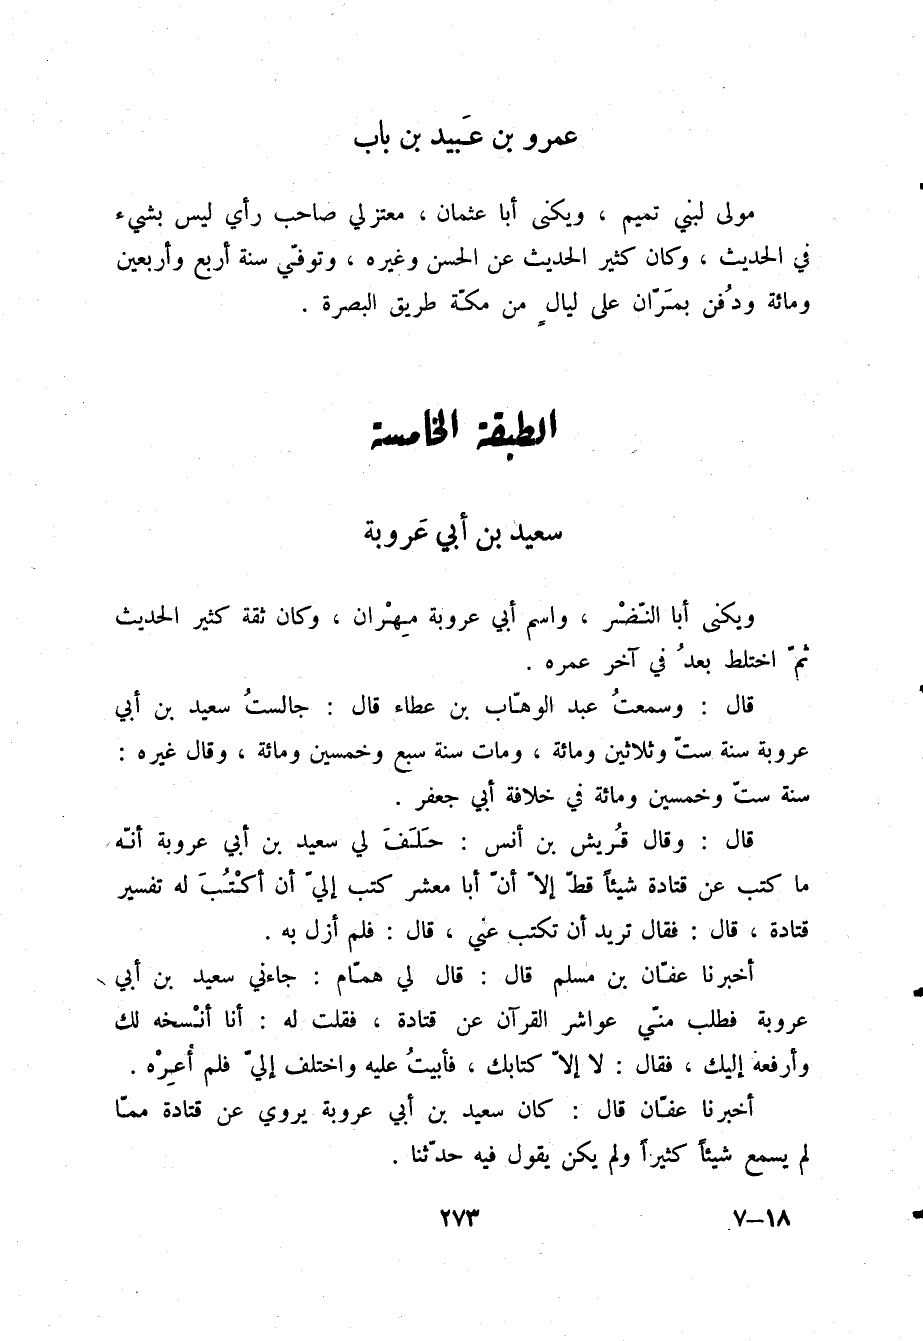 عمرو بن عَبيد بن باب
مولى لبني تميم ، ويكنى أبا عثمان ، معتزلي صاحب رأي ليس بشيء
في الحديث ، وكان كثير الحديث عن الحسن وغيره ، وتوفّي سنة أربع وأربعين
ومائة ودُفن بمَرّان على ليالٍ من مكّة طريق البصرة .
الطبقة الخامسة
سعيد بن أبي عَروبة
ويكنى أبا النّضْر ، واسم أبي عروبة مِهْران ، وكان ثقة كثير الحديث
ثمّ اختلط بعدُ في آخر عمره .
قال : وسمعتُ عبد الوهّاب بن عطاء قال : جالستُ سعيد بن أبي
عروبة سنة ستّ وثلاثين ومائة ، ومات سنة سبع وخمسين ومائة ، وقال غيره :
سنة ستّ وخمسين ومائة في خلافة أبي جعفر .
قال : وقال قُريش بن أنس : حَلَفَ لي سعيد بن أبي عروبة أنّه
ما كتب عن قتادة شيئاً قطّ إلاّ أنّ أبا معشر كتب إليّ أن أكْتُبَ له تفسير
قتادة ، قال : فقال تريد أن تكتب عني ، قال : فلم أزل به .
أخبرنا عفّان بن مسلم قال : قال لي همّام : جاءني سعيد بن أبي
عروبة فطلب منّي عواشر القرآن عن قتادة ، فقلت له : أنا أنْسخه لك
وأرفعه إليك ، فقال : لا إلاّ كتابك ، فأبيتُ عليه واختلف إليّ فلم أُعِرْه .
أخبرنا عفّان قال : كان سعيد بن أبي عروبة يروي عن قتادة ممّا
لم يسمع شيئاً كثيراً ولم يكن يقول فيه حدّثنا .
٢٧٣
١٨–٧